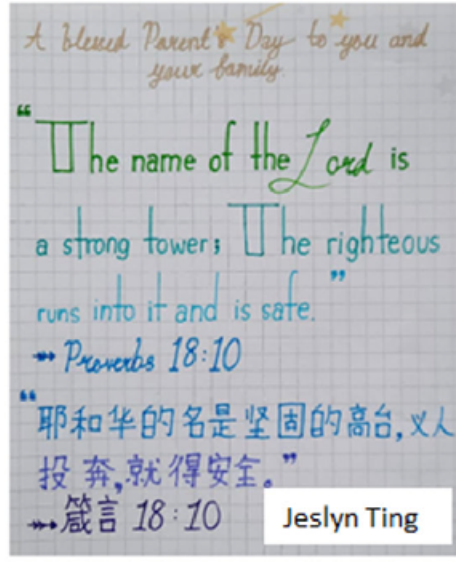 A blessed Parent's Day to you and
your family.
“The name of the Lord is
a strong tower; The righteous
runs into it and is safe.”
➻ Proverbs 18:10
“耶和华的名是坚固的高台,义人
投奔,就得安全。”
➻ 箴言 18:10
Jeslyn Ting